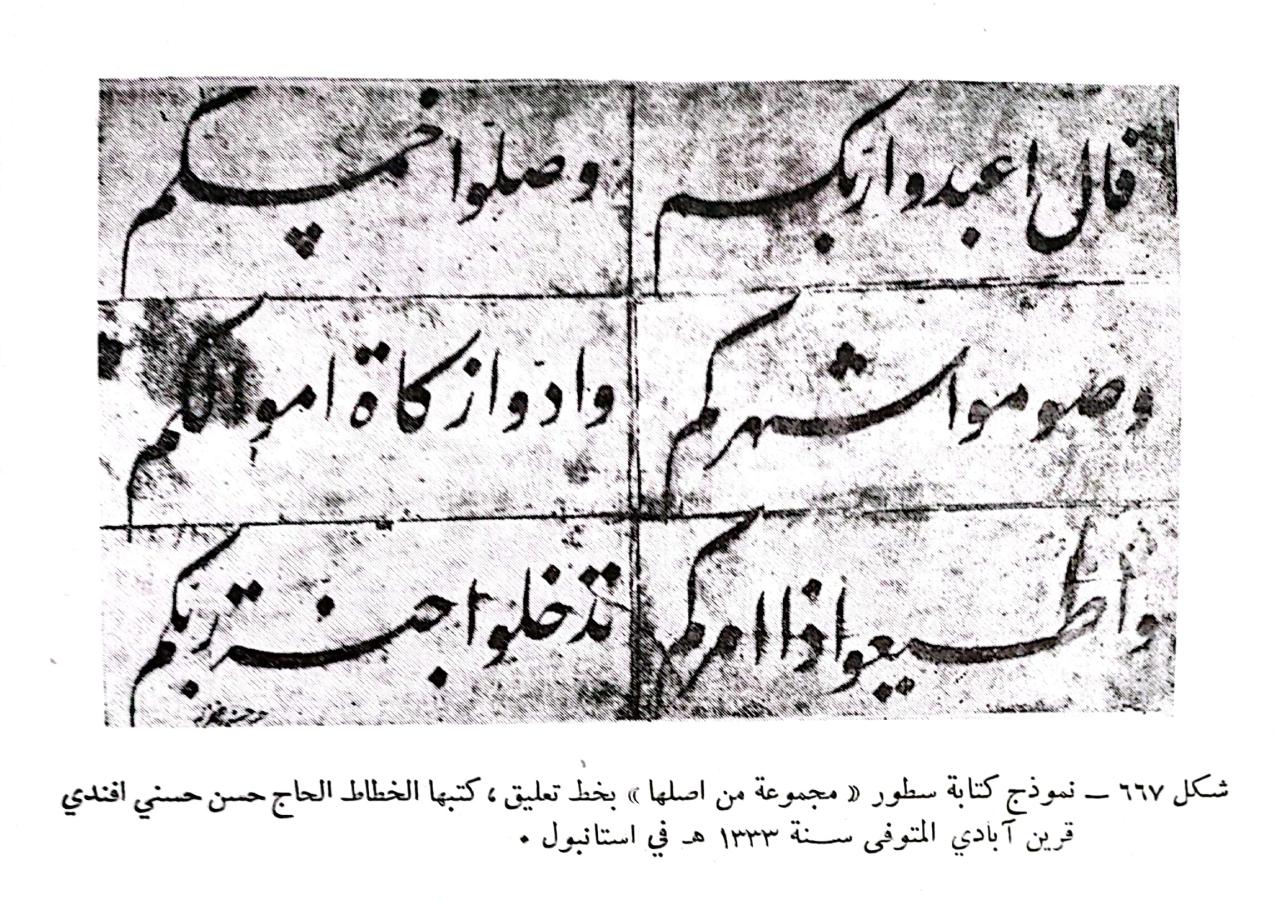 قال اعبدوا ربكم
وصلوا خمسكم
وصوموا شهركم
وادّوا زكاة اموالكم
وأطيعوا اذا امركم
تدخلوا جنة ربكم
شكل ٦٦٧ ــ نموذج كتابة سطور « مجموعة من اصلها » بخط تعليق ، كتبها الخطاط الحاج حسن حسني افندي
قرين آبادي المتوفى سنة ١٣٣٣ هـ في استانبول .